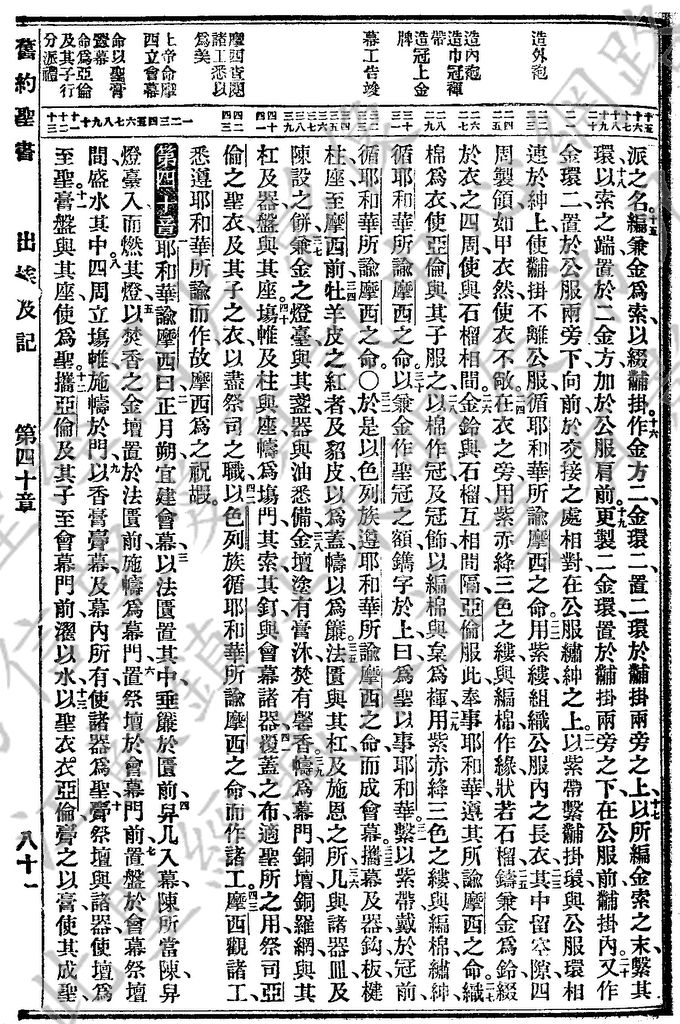 造外袍
造內袍
造巾冠褌
帶
造冠上金
牌
幕工告竣
摩西查閱
諸工悉以
爲美
上帝命摩
西立會幕
命以聖膏
膏幕
命爲亞倫
及其子行
分派禮
派之名編兼金爲索以綴黼掛作金方二金環二置二環於黼掛兩旁之上以所編金索之末繫其
環以索之端置於二金方加於公服肩前更製二金環置於黼掛兩旁之下在公服前黼掛內又作
金環二置於公服兩旁下向前於交接之處相對在公服繡紳之上以紫帶繫黼掛環與公服環相
連於紳上使黼掛不離公服循耶和華所諭摩西之命用紫縷組織公服內之長衣其中留空隙四
周製領如甲衣然使衣不敝在衣之旁用紫赤絳三色之縷與編棉作緣狀若石榴鑄兼金爲鈴綴
於衣之四周使與石榴相間金鈴與石榴互相間隔亞倫服此奉事耶和華遵其所諭摩西之命織
棉爲衣使亞倫與其子服之以棉作冠及冠飾以編棉與枲爲褌用紫赤絳三色之縷與編棉繡紳
循耶和華所諭摩西之命以兼金作聖冠之額鐫字於上曰爲聖以事耶和華繫以紫帶戴於冠前
循耶和華所諭摩西之命〇於是以色列族遵耶和華所諭摩西之命而成會幕攜幕及器鈎板楗
柱座至摩西前牡羊皮之紅者及貂皮以爲蓋幬以爲簾法匱與其杠及施恩之所几與諸器皿及
陳設之餅兼金之燈臺與其盞器與油悉備金壇塗有膏沐焚有馨香幬爲幕門銅壇銅羅網與其
杠及器盤與其座塲帷及柱與座幬爲塲門其索其釘與會幕諸器覆蓋之布適聖所之用祭司亞
倫之聖衣及其子之衣以盡祭司之職以色列族循耶和華所諭摩西之命而作諸工摩西觀諸工
悉遵耶和華所諭而作故摩西爲之祝嘏
第四十章耶和華諭摩西曰正月朔宜建會幕以法匱置其中垂簾於匱前舁几入幕陳所當陳舁
燈臺入而燃其燈以焚香之金壇置於法匱前施幬爲幕門置祭壇於會幕門前置盤於會幕祭壇
間盛水其中四周立塲帷施幬於門以香膏膏幕及幕內所有使諸器爲聖膏祭壇與諸器使壇爲
至聖膏盤與其座使爲聖攜亞倫及其子至會幕門前濯以水以聖衣衣亞倫膏之以膏使其成聖
舊約聖書 出埃及記 第四十章 八十一